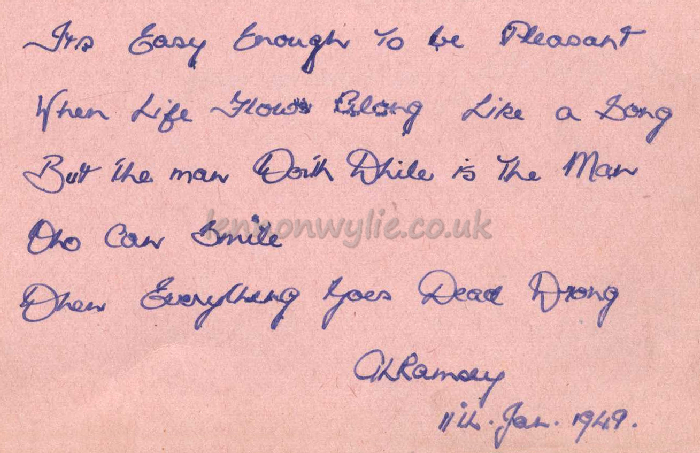 Its Easy Enough To be Pleasant
When Life Flows Along Like a Song
But the man Worth While is The Man
Who Can Smile
lennonwylie.co.uk
When Everything Goes Dead Wrong
A L Ramsey
11th. Jan. 1949.